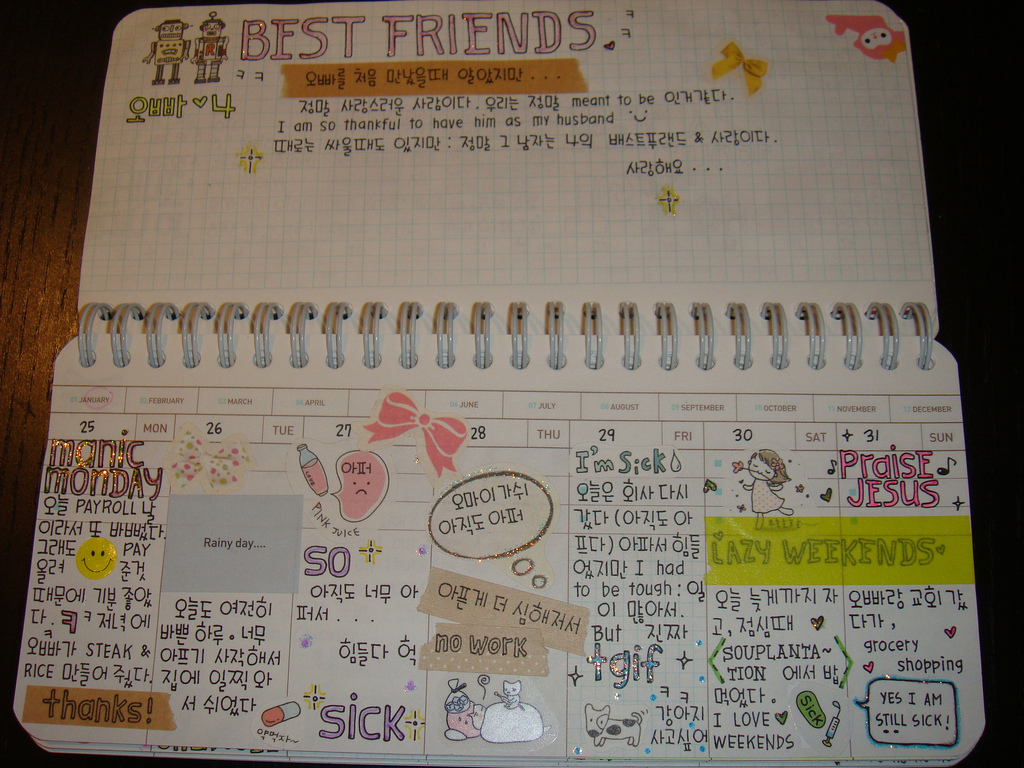 BEST FRIENDS
ㅋ
ㅋ
ㅋ ㅋ
오빠를 처음 만났을때 알았지만 . . .
오빠 ♥ 나
정말 사랑스러운 사람이다. 우리는 정말 meant to be 인거같다.
I am so thankful to have him as my husband
때로는 싸울때도 있지만 : 정말 그 남자는 나의 배스트푸랜드 & 사랑이다.
사랑해요 . . .
01 JANUARY 02 FEBRUARY 03 MARCH 04 APRIL 06 JUNE 07 JULY 08 AUGUST 09 SEPTEMBER 10 OCTOBER 11 NOVEMBER 12 DECEMBER
25 MON
manic
monday
오늘 PAYROLL 날
이라서 또 바빴다.
그래도 PAY
올려 준것
때문에 기분 좋았
다. ㅋㅋ 저녁에
오빠가 STEAK &
RICE 만들어 줬다.
thanks!
26 TUE
Rainy day....
오늘도 여전히
바쁜 하루. 너무
아프기 시작해서
집에 일찍 와
서 쉬였다
27
아퍼
PINK JUICE
SO
아직도 너무 아
퍼서 . . .
힘들다 헉
SICK
약먹자~
28 THU
오마이가쉬
아직도 아퍼
아픈게 더 심해져서
no work
29 FRI
I'm Sick
오늘은 회사 다시
갔다 (아직도 아
프다) 아파서 힘들
었지만 I had
to be tough : 일
이 많아서.
But 진짜
tgif
ㅋ ㅋ
강아지
사고싶어
30 SAT
LAZY WEEKENDS
오늘 늦게까지 자
고, 점심때
SOUPLANTA~
TION 에서 밥
먹었다.
I LOVE
WEEKENDS
Sick
31 SUN
PRAISE
JESUS
오빠랑 교회 갔
다가,
grocery
shopping
YES I AM
STILL SICK!